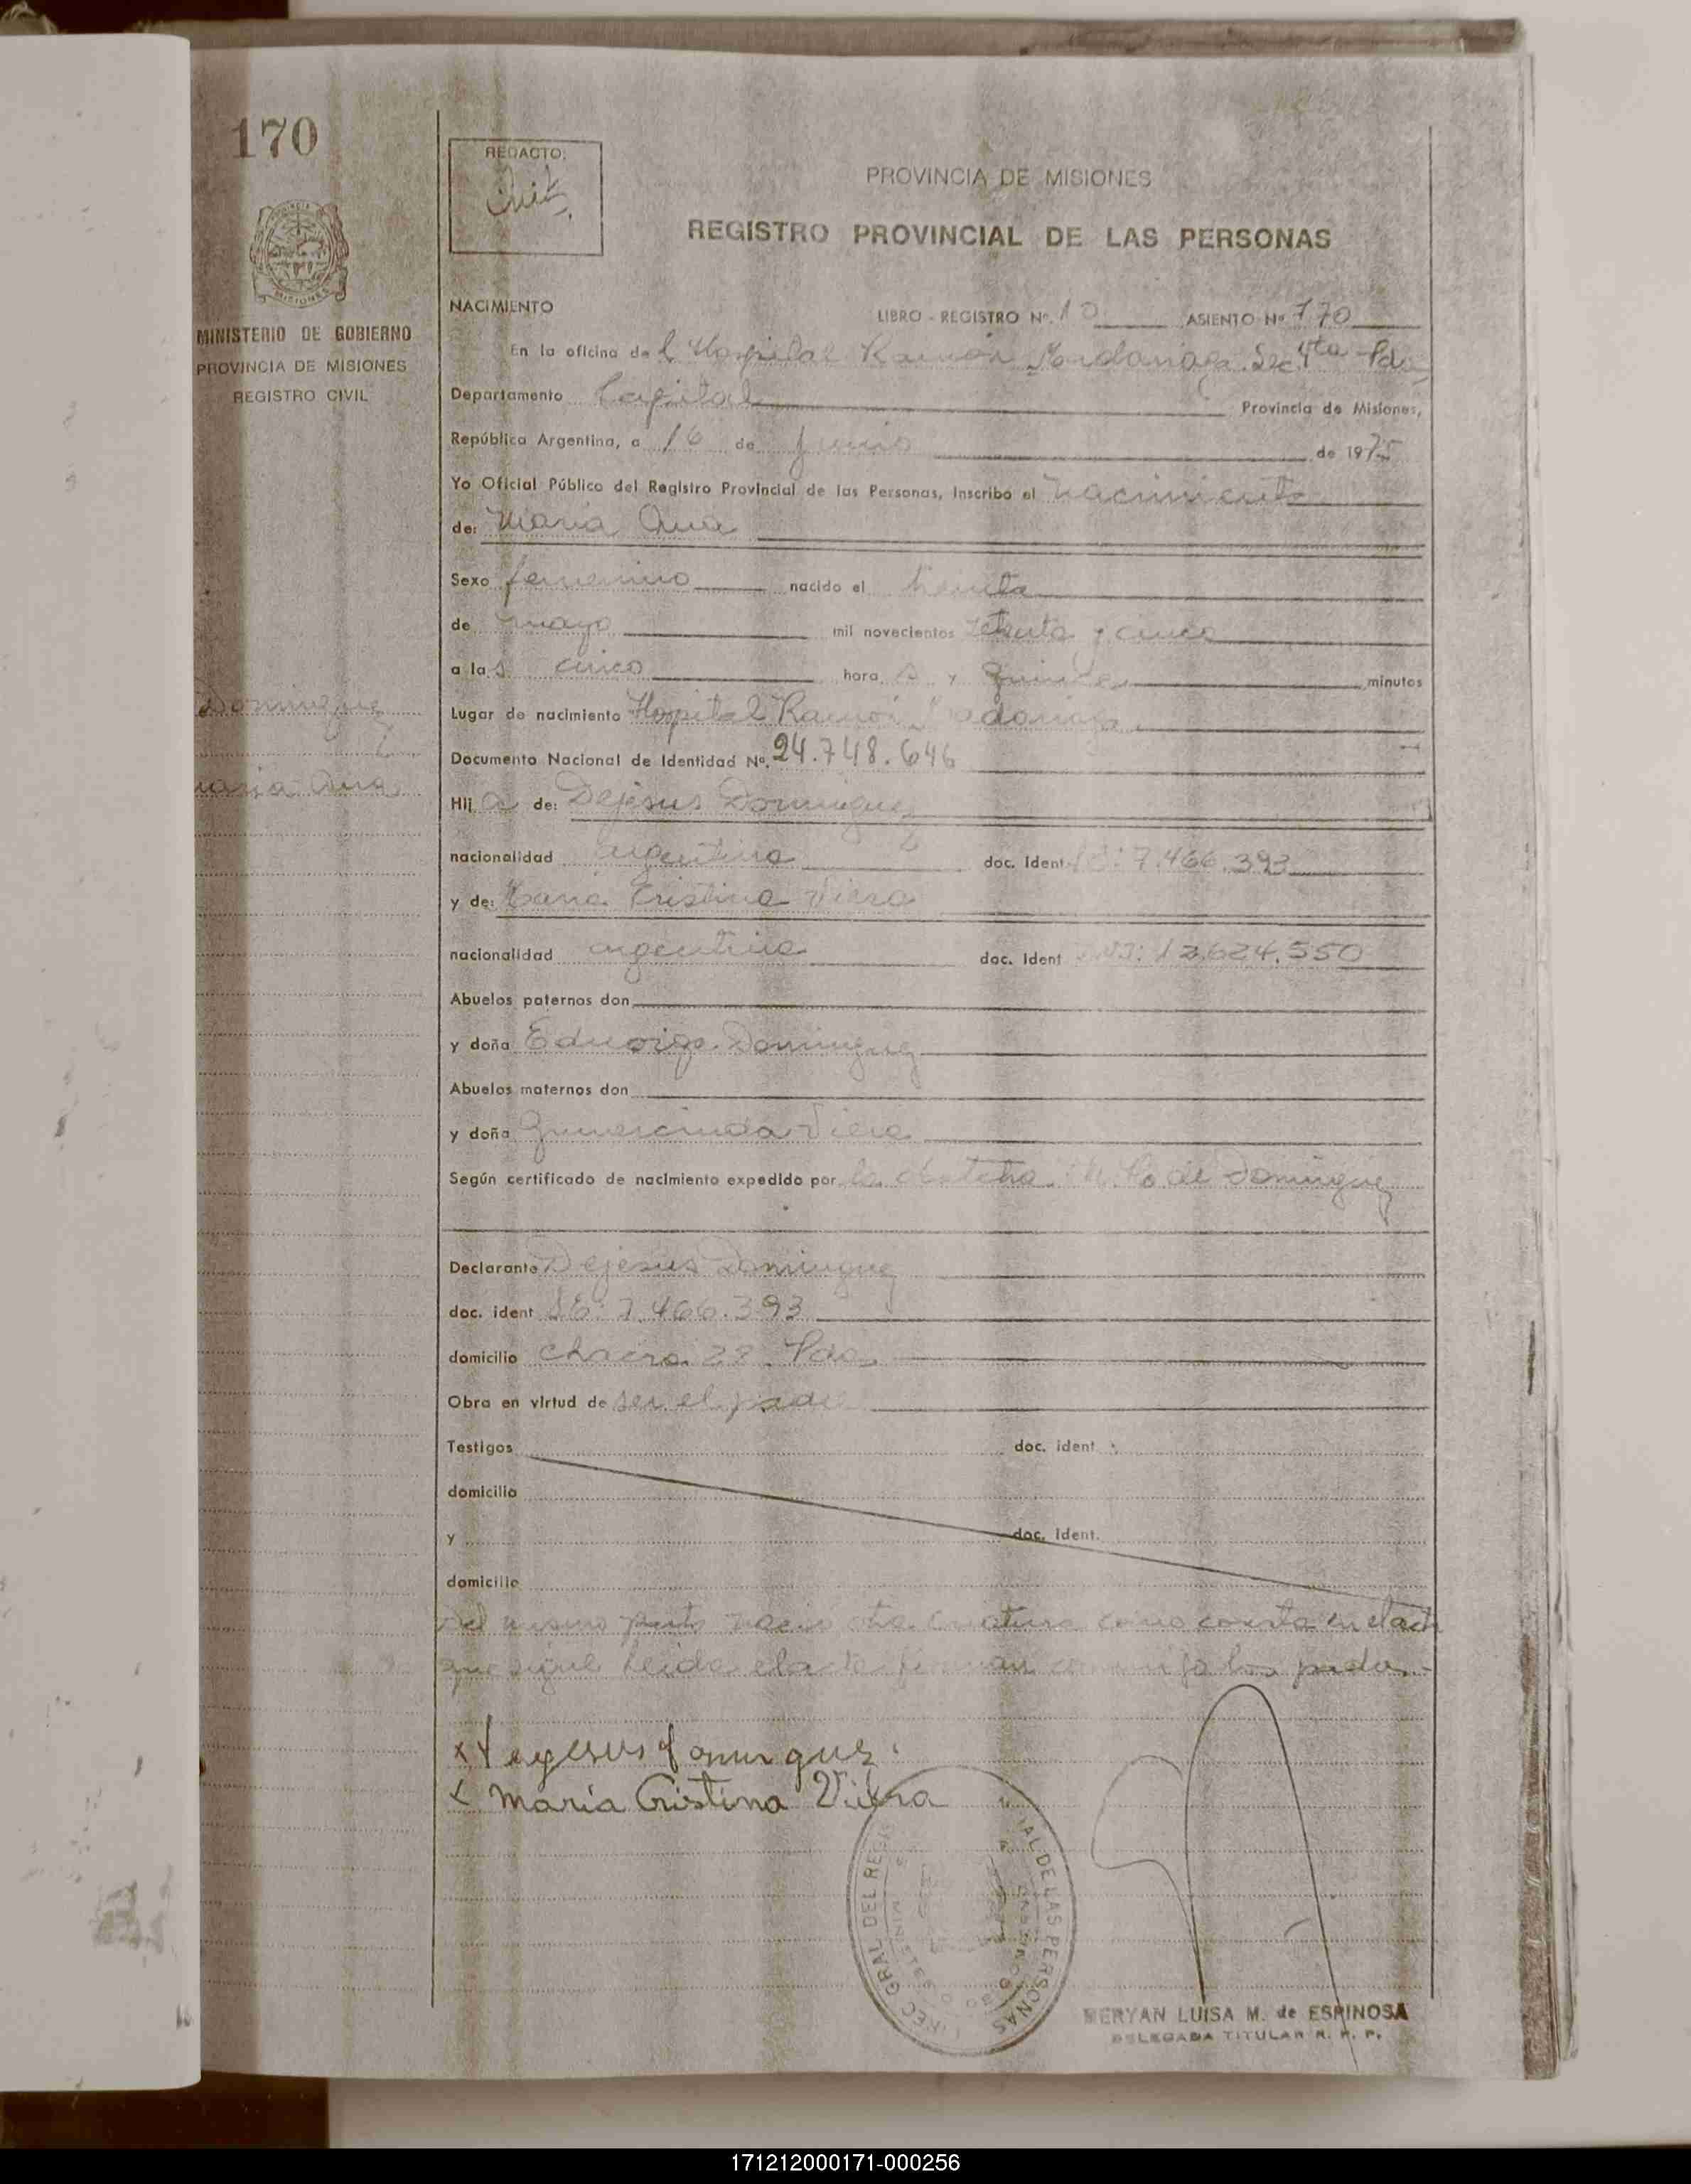 170
REDACTO:
PROVINCIA DE MISIONES
REGISTRO PROVINCIAL DE LAS PERSONAS
PROVINCIA
MISIONES
MINISTERIO DE GOBIERNO
PROVINCIA DE MISIONES
REGISTRO CIVIL
Dominguez
Maria Ana
NACIMIENTO LIBRO - REGISTRO Nº. 10 ASIENTO Nº 170
En la oficina del Hospital Ramón Madariaga Sec. 4ta Pdas
Departamento Capital Provincia de Misiones,
República Argentina, a 16 de junio de 1975
Yo Oficial Público del Registro Provincial de las Personas, Inscribo el nacimiento
de: Maria Ana
Sexo femenino nacido el treinta
de mayo mil novecientos setenta y cinco
a las cinco horas y quince minutos
Lugar de nacimiento Hospital Ramón Madariaga
Documento Nacional de Identidad Nº. 24.748.646
Hija de: Dejesus Dominguez
nacionalidad argentina doc. Ident 7.466.393
y de: Maria Cristina Viera
nacionalidad argentina doc. Ident 12.624.550
Abuelos paternos don
y doña Eduviges Dominguez
Abuelos maternos don
y doña Gumercinda Viera
Según certificado de nacimiento expedido por la obstetra de Dominguez
Declarante Dejesus Dominguez
doc. ident LE: 7.466.393
domicilio chacra 29 Pdas
Obra en virtud de ser el padre
Testigos doc. ident
domicilio
y doc. Ident.
domicilio
Del mismo parto nació otra criatura como consta en el acta
que sigue Leida el acta firman conmigo los padres.-
x Dejesus Dominguez
x Maria Cristina Viera
DIREC GRAL DEL REGIS IAL DE LAS PERSONAS
MINISTERIO
MERYAN LUISA M. de ESPINOSA
DELEGADA TITULAR R. P. P.
171212000171-000256